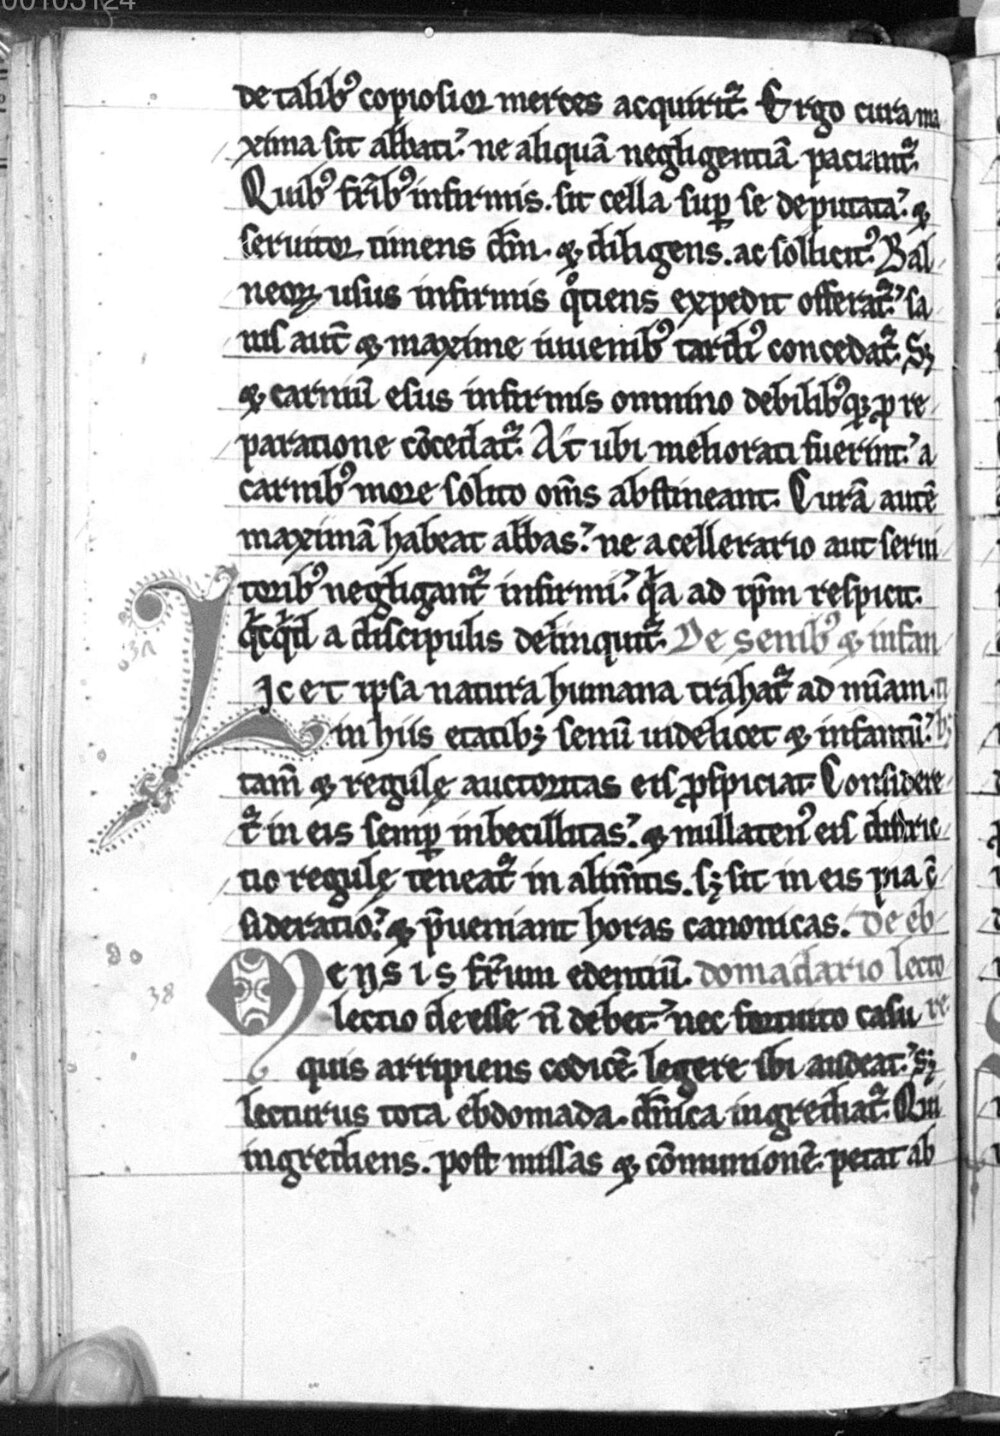 00103124
de talibꝰ copiosior merces acquirit᷑. Ergo cura ma
xima sit abbati. ne aliquā negligentiā paciant᷑.
Quibꝰ fr̄ibꝰ infirmis. sit cella suꝑ se deputata. ⁊
seruitor timens dm̄. ⁊ diligens. ac sollicitꝰ. Bal
neoꝝ usus infirmis qͦtiens expedit offerat᷑. sa
nis aut̄ ⁊ maxime iuuenibꝰ tardiꝰ concedat᷑. Sꝫ
⁊ carniū esus infirmis omnino debilibꝰqꝫ ꝓ re
paratione cōcedat᷑. At ubi meliorati fuerint. a
carnibꝰ more solito om̄s abstineant. Curā autē
maximā habeat abbas. ne a cellerario aut serui
toribꝰ negligant᷑ infirmi. qͣa ad ip̄m respicit
qͥcqͥd a discipulis delinquit᷑. De senibꝰ ⁊ infan
Licet ipsa natura humana trahat᷑ ad mīam. ti
in hiis etatibꝫ senū uidelicet ⁊ infantū. bꝫ
tam̄ ⁊ regulę auctoritas eis ꝓspiciat. Considere
t᷑ in eis semꝑ inbecillitas. ⁊ nullatenꝰ eis distric
tio regulę teneat᷑ in alim̄tis. sꝫ sit in eis pia cō
sideratio. ⁊ p̄ueniant horas canonicas. De eb
Mensis fr̄um edentiū. domadario lecto
lectio deesse n̄ debet. nec fortuito casu re
quis arripiens codicē legere ibi audeat. sꝫ
lecturus tota ebdomada. dn̄ica ingrediat᷑. Qui
ingrediens. post missas ⁊ cōmunionē. petat ab
38